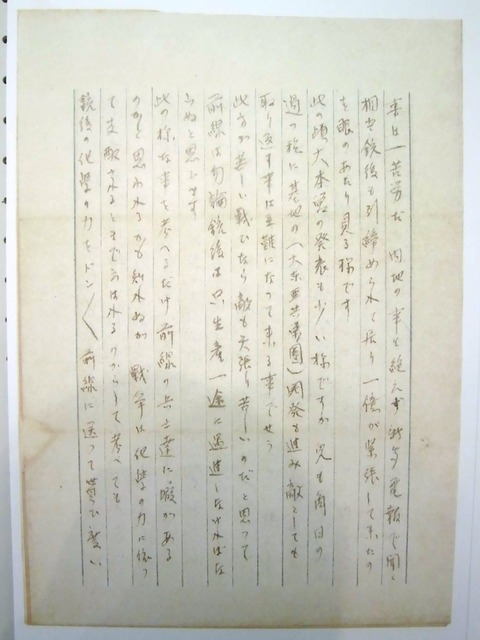 事は一苦労だ 内地の事も絶えず新聞電報で聞く
相当銃後も引締められて居り 一億が緊張して来たの
を眼のあたり見る様です
此の頃大本営の発表も少い様ですが 兄も毎日の
過つ様に基地の(大東亜共栄圏)開発も進み敵としても
取り返す事は至難になって来る事でせう
此方が苦しい戦ひなら敵も矢張り苦しいのだと思って
前線は勿論銃後は只生産一途に邁進しなければな
らぬと思ひます
此の様な事を考へるだけ前線の兵士達に暇がある
のかと思われるかも知れぬが 戦争は化学の力に依っ
て支配されるとまで云はれるのからして考へても
銃後の化学の力をドン〱前線に送って貰ひ度い